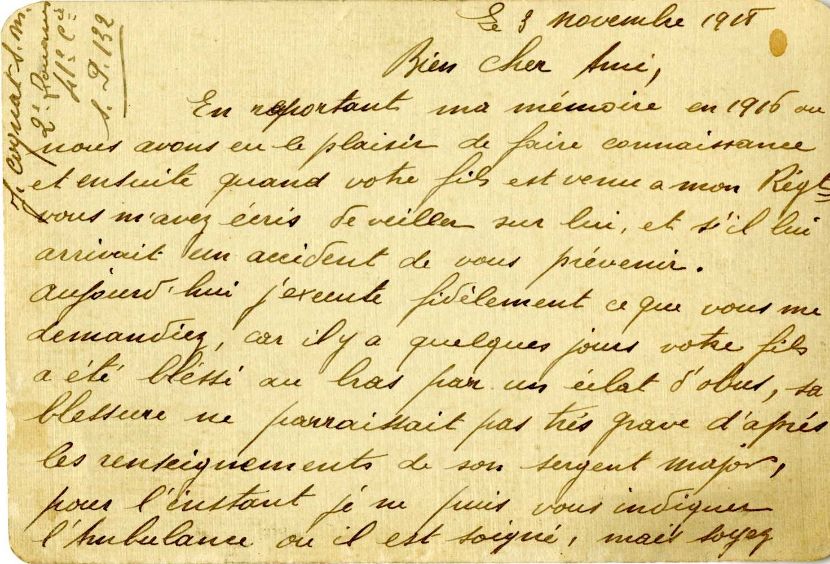 Le 3 novembre 1918
Bien cher Ami,
En reportant ma mémoire en 1916 ou
nous avons eu le plaisir de faire connaissance
et ensuite quand votre fils est venu a mon Régt
vous m'avez écris de veiller sur lui, et s'il lui
arrivait un accident de vous prévenir.
Aujourd'hui j'execute fidèlement ce que vous me
demandiez, car il y a quelques jours votre fils
a été bléssé au bras par un éclat d'obus, sa
blessure ne parraissait pas très grave d'après
les renseignements de son sergent major,
pour l'instant je ne puis vous indiquer
l'Ambulance ou il est soigné, mais soyez
J. Cognat S. M.
41e Cie
S. P. 132